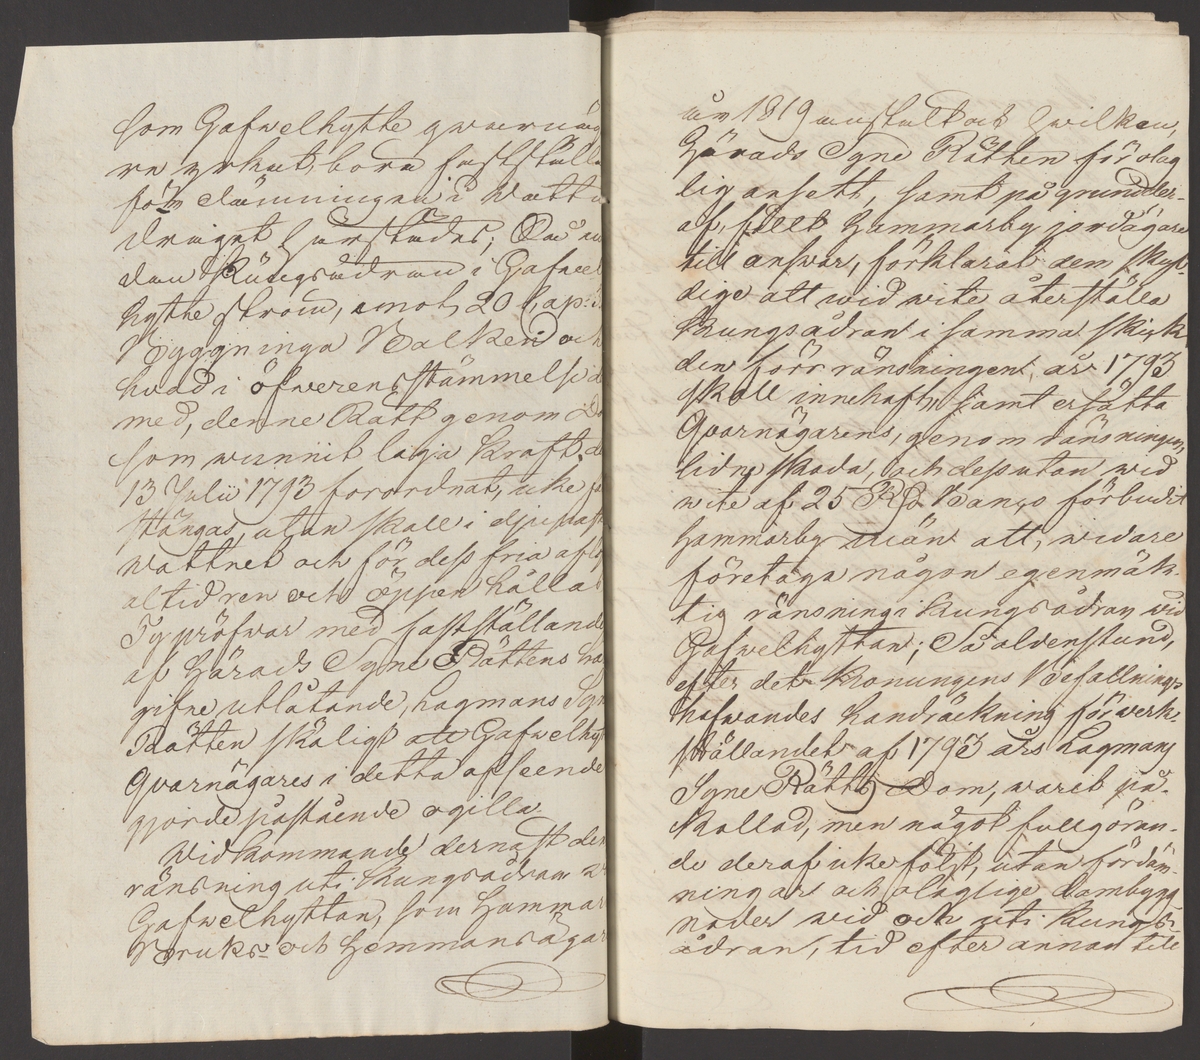 som Gafwelhytte qwarnäg
re yrkat, bora fastställa
för dämningen i Watt
draget härstädes; Då
den Kungsådran i Gafwel
hytte ström, emot 20
Byggninga Balken och
hwad i öfwerensstämmelse
med, denne Rätt genom Do
som wunnit laga kraft, d
13 Julii 1793 forordnat, icke
stängas, utan skall i djupaste
wattnet och för dess fria aflo
altid ren och öppen hållas
Ty pröfwar med fastställande
af Härads Syne Rättens
gifne utlåtande, Lagmans Syn
Rätten skäligt att Gafwelhy
Qvarnägares i detta afseende
gjorde påstående ogilla.
Widkommande dernäst den
ränsning uti Kungsådran w
Gafwelhyttan, som Hammar
Bruks- och Hemmansägar
åur 1819 anstaltat hwilken,
Härads Syne Rätten för olag
lig ansett, samt på grund der-
af, fällt Hammarby jordägare
till answar, förklarat dem skyl-
dige att wid wite återställa
Kungsådran i samma skick
den förr ränsningen, år 1793
skall innehaft, samt ersätta
Qvarnägarens, genom ränsningen,
lidne skada, och dessutan wid
wite af 25 Rd Banco förbudit
Hammarby män att, widare
företaga någon egenmäk-
tig ränsning i Kungsådran wid
Gafwelhyttan; Så aldenstund,
efter det Konungens Befallnings
hafwandes handräckning för werk-
ställandet af 1793 års Lagmans
Syne Rätts Dom, warit på-
kallad, men något fullgöran-
de deraf icke följt, utan fördäm-
ningar och olaglige dambygg
nader wid och uti Kungs-
ådran, tid efter annan till